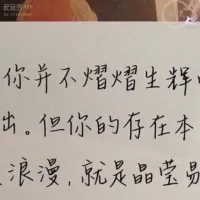 你并不熠熠生辉
出。但你的存在本
浪漫,就是晶莹易